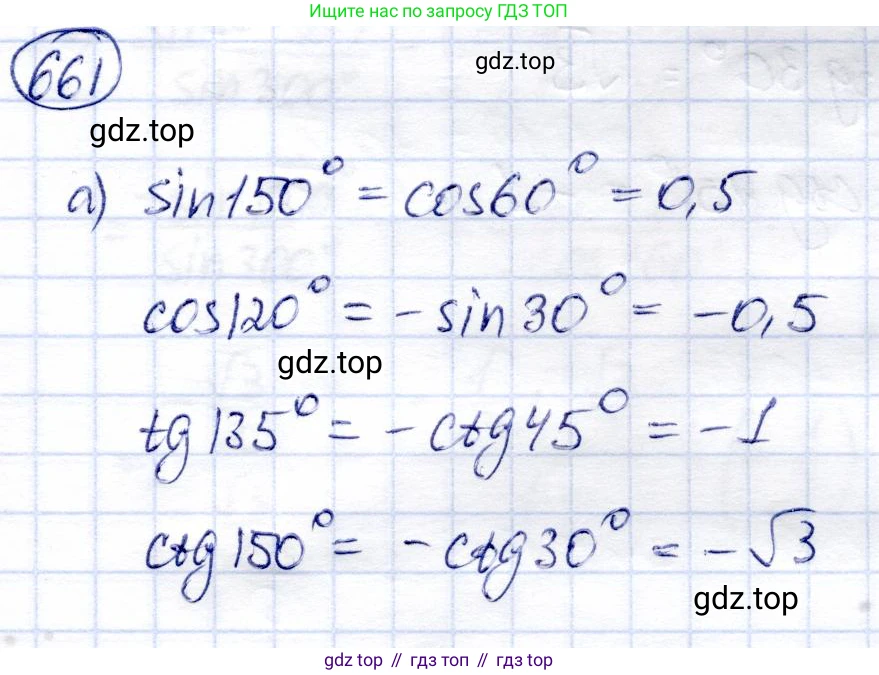 Ищите нас по запросу ГДЗ ТОП
661
gdz.top
gdz.top
а) sin150° = cos60° = 0,5
cos120° = -sin30° = -0,5
gdz.top
tg135° = -ctg45° = -1
ctg150° = -ctg30° = -√3
gdz.top
gdz top // гдз топ // гдз top